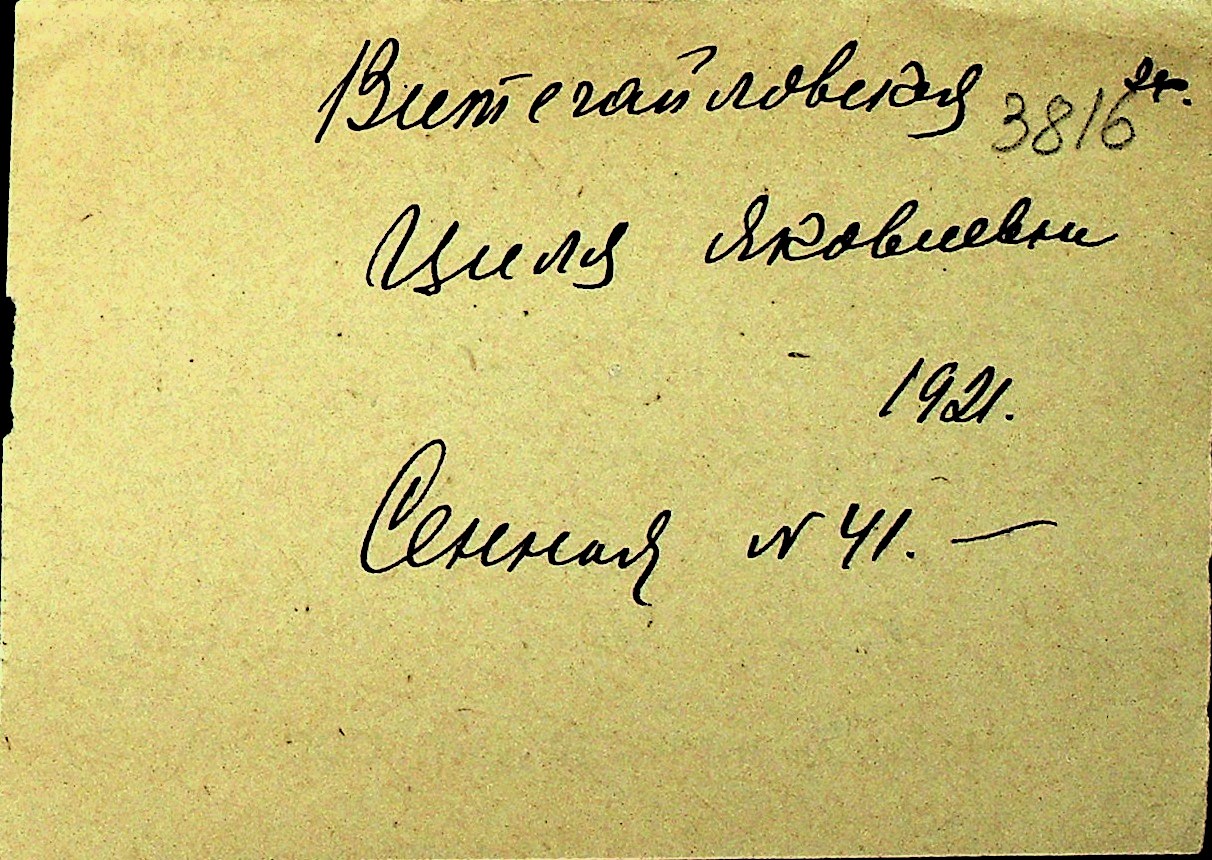 Витегайловская 3816
Циля Яковлевна
1921.
Сенная № 41. —